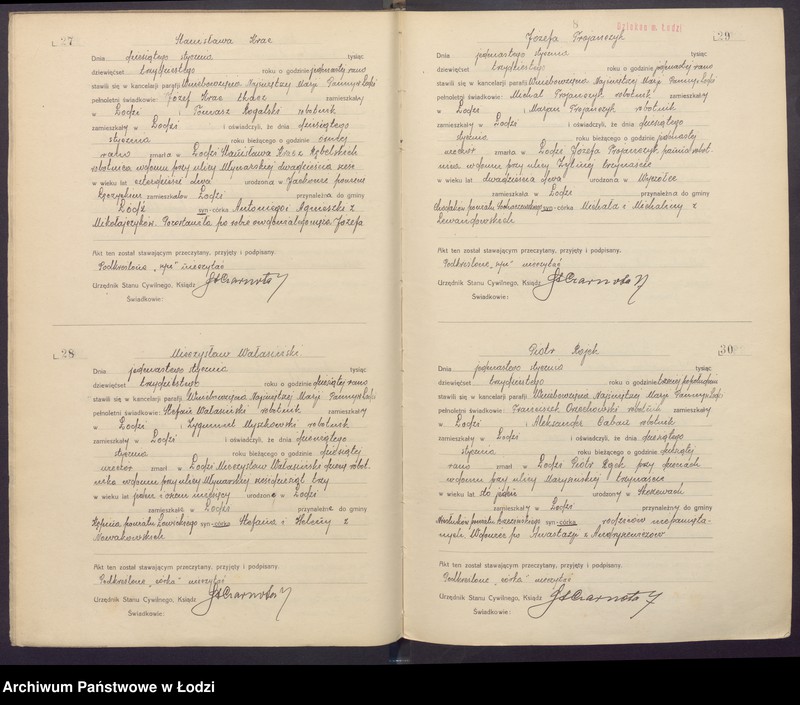 L. 27
Stanisława Krac
Dnia dziesiątego stycznia tysiąc
dziewięćset trzydziestego roku o godzinie jedenastej rano
stawili się w kancelarii parafji Wniebowzięcia Najświętszej Marji Panny w Łodzi
pełnoletni świadkowie: Józef Krac tkacz zamieszkały
w Łodzi i Tomasz Rogalski robotnik
zamieszkały w Łodzi i oświadczyli, że dnia dziesiątego
stycznia roku bieżącego o godzinie ósmej
rano zmarła w Łodzi Stanisława Krac
robotnica w domu przy ulicy Młynarskiej dwadzieścia
w wieku lat czterdzieści dwa urodzona w powiecie
zamieszkała w Łodzi przynależna do gminy
Łódź syn-córka Antoniego i Agnieszki z
Mikołajczyków. Pozostawiła po sobie owdowiałego męża Józefa
Akt ten został stawającym przeczytany, przyjęty i podpisany.
Podkreślone „syn" nieczytać
Urzędnik Stanu Cywilnego, Ksiądz St Czarnota
Świadkowie:
L. 28
Mieczysław Walasiński
Dnia jedenastego stycznia tysiąc
dziewięćset trzydziestego roku o godzinie dziesiątej rano
stawili się w kancelarii parafji Wniebowzięcia Najświętszej Marji Panny w Łodzi
pełnoletni świadkowie: Stefan Walasiński robotnik zamieszkały
w Łodzi i Zygmunt Myszkowski robotnik
zamieszkały w Łodzi i oświadczyli, że dnia dziesiątego
stycznia roku bieżącego o godzinie dziesiątej
wieczór zmarł w Łodzi Mieczysław Walasiński
w domu przy ulicy Młynarskiej sześćdziesiąt trzy
w wieku lat jeden i osiem miesięcy urodzony w Łodzi
zamieszkały w Łodzi przynależne do gminy
powiatu Łowickiego syn-córka Stefana i Heleny z
Nowakowskich
Akt ten został stawającym przeczytany, przyjęty i podpisany.
Podkreślone „córka" nieczytać
Urzędnik Stanu Cywilnego, Ksiądz St Czarnota
Świadkowie:
8
L. 29
Józefa Trojańczyk
Dnia jedenastego stycznia tysiąc
dziewięćset trzydziestego roku o godzinie jedenastej rano
stawili się w kancelarii parafji Wniebowzięcia Najświętszej Marji Panny w Łodzi
pełnoletni świadkowie: Michał Trojańczyk robotnik zamieszkały
w Łodzi i Marjan Trojańczyk robotnik
zamieszkały w Łodzi i oświadczyli, że dnia dziesiątego
stycznia roku bieżącego o godzinie jedenastej
wieczór zmarła w Łodzi Józefa Trojańczyk panna
w domu przy ulicy Żytniej trzynaście
w wieku lat dwadzieścia dwa urodzona w
zamieszkała w Łodzi przynależna do gminy
powiatu Sochaczewskiego syn-córka Michała i Michaliny z
Lewandowskich
Akt ten został stawającym przeczytany, przyjęty i podpisany.
Podkreślone „syn" nieczytać
Urzędnik Stanu Cywilnego, Ksiądz St Czarnota
Świadkowie:
L. 30
Piotr
Dnia jedenastego stycznia tysiąc
dziewięćset trzydziestego roku o godzinie trzeciej po południu
stawili się w kancelarii parafji Wniebowzięcia Najświętszej Marji Panny w Łodzi
pełnoletni świadkowie: Franciszek Orzechowski robotnik zamieszkały
w Łodzi i Aleksander Caban robotnik
zamieszkały w Łodzi i oświadczyli, że dnia dziesiątego
stycznia roku bieżącego o godzinie dziesiątej
rano zmarł w Łodzi Piotr przy dzieciach
w domu przy ulicy Marysińskiej trzynaście
w wieku lat urodzony w
zamieszkały w Łodzi przynależny do gminy
powiatu syn-córka rodziców niepamięta-
nych. Wdowiec po Anastazji z
Akt ten został stawającym przeczytany, przyjęty i podpisany.
Podkreślone „córka" nieczytać
Urzędnik Stanu Cywilnego, Ksiądz St Czarnota
Świadkowie:
Archiwum Państwowe w Łodzi